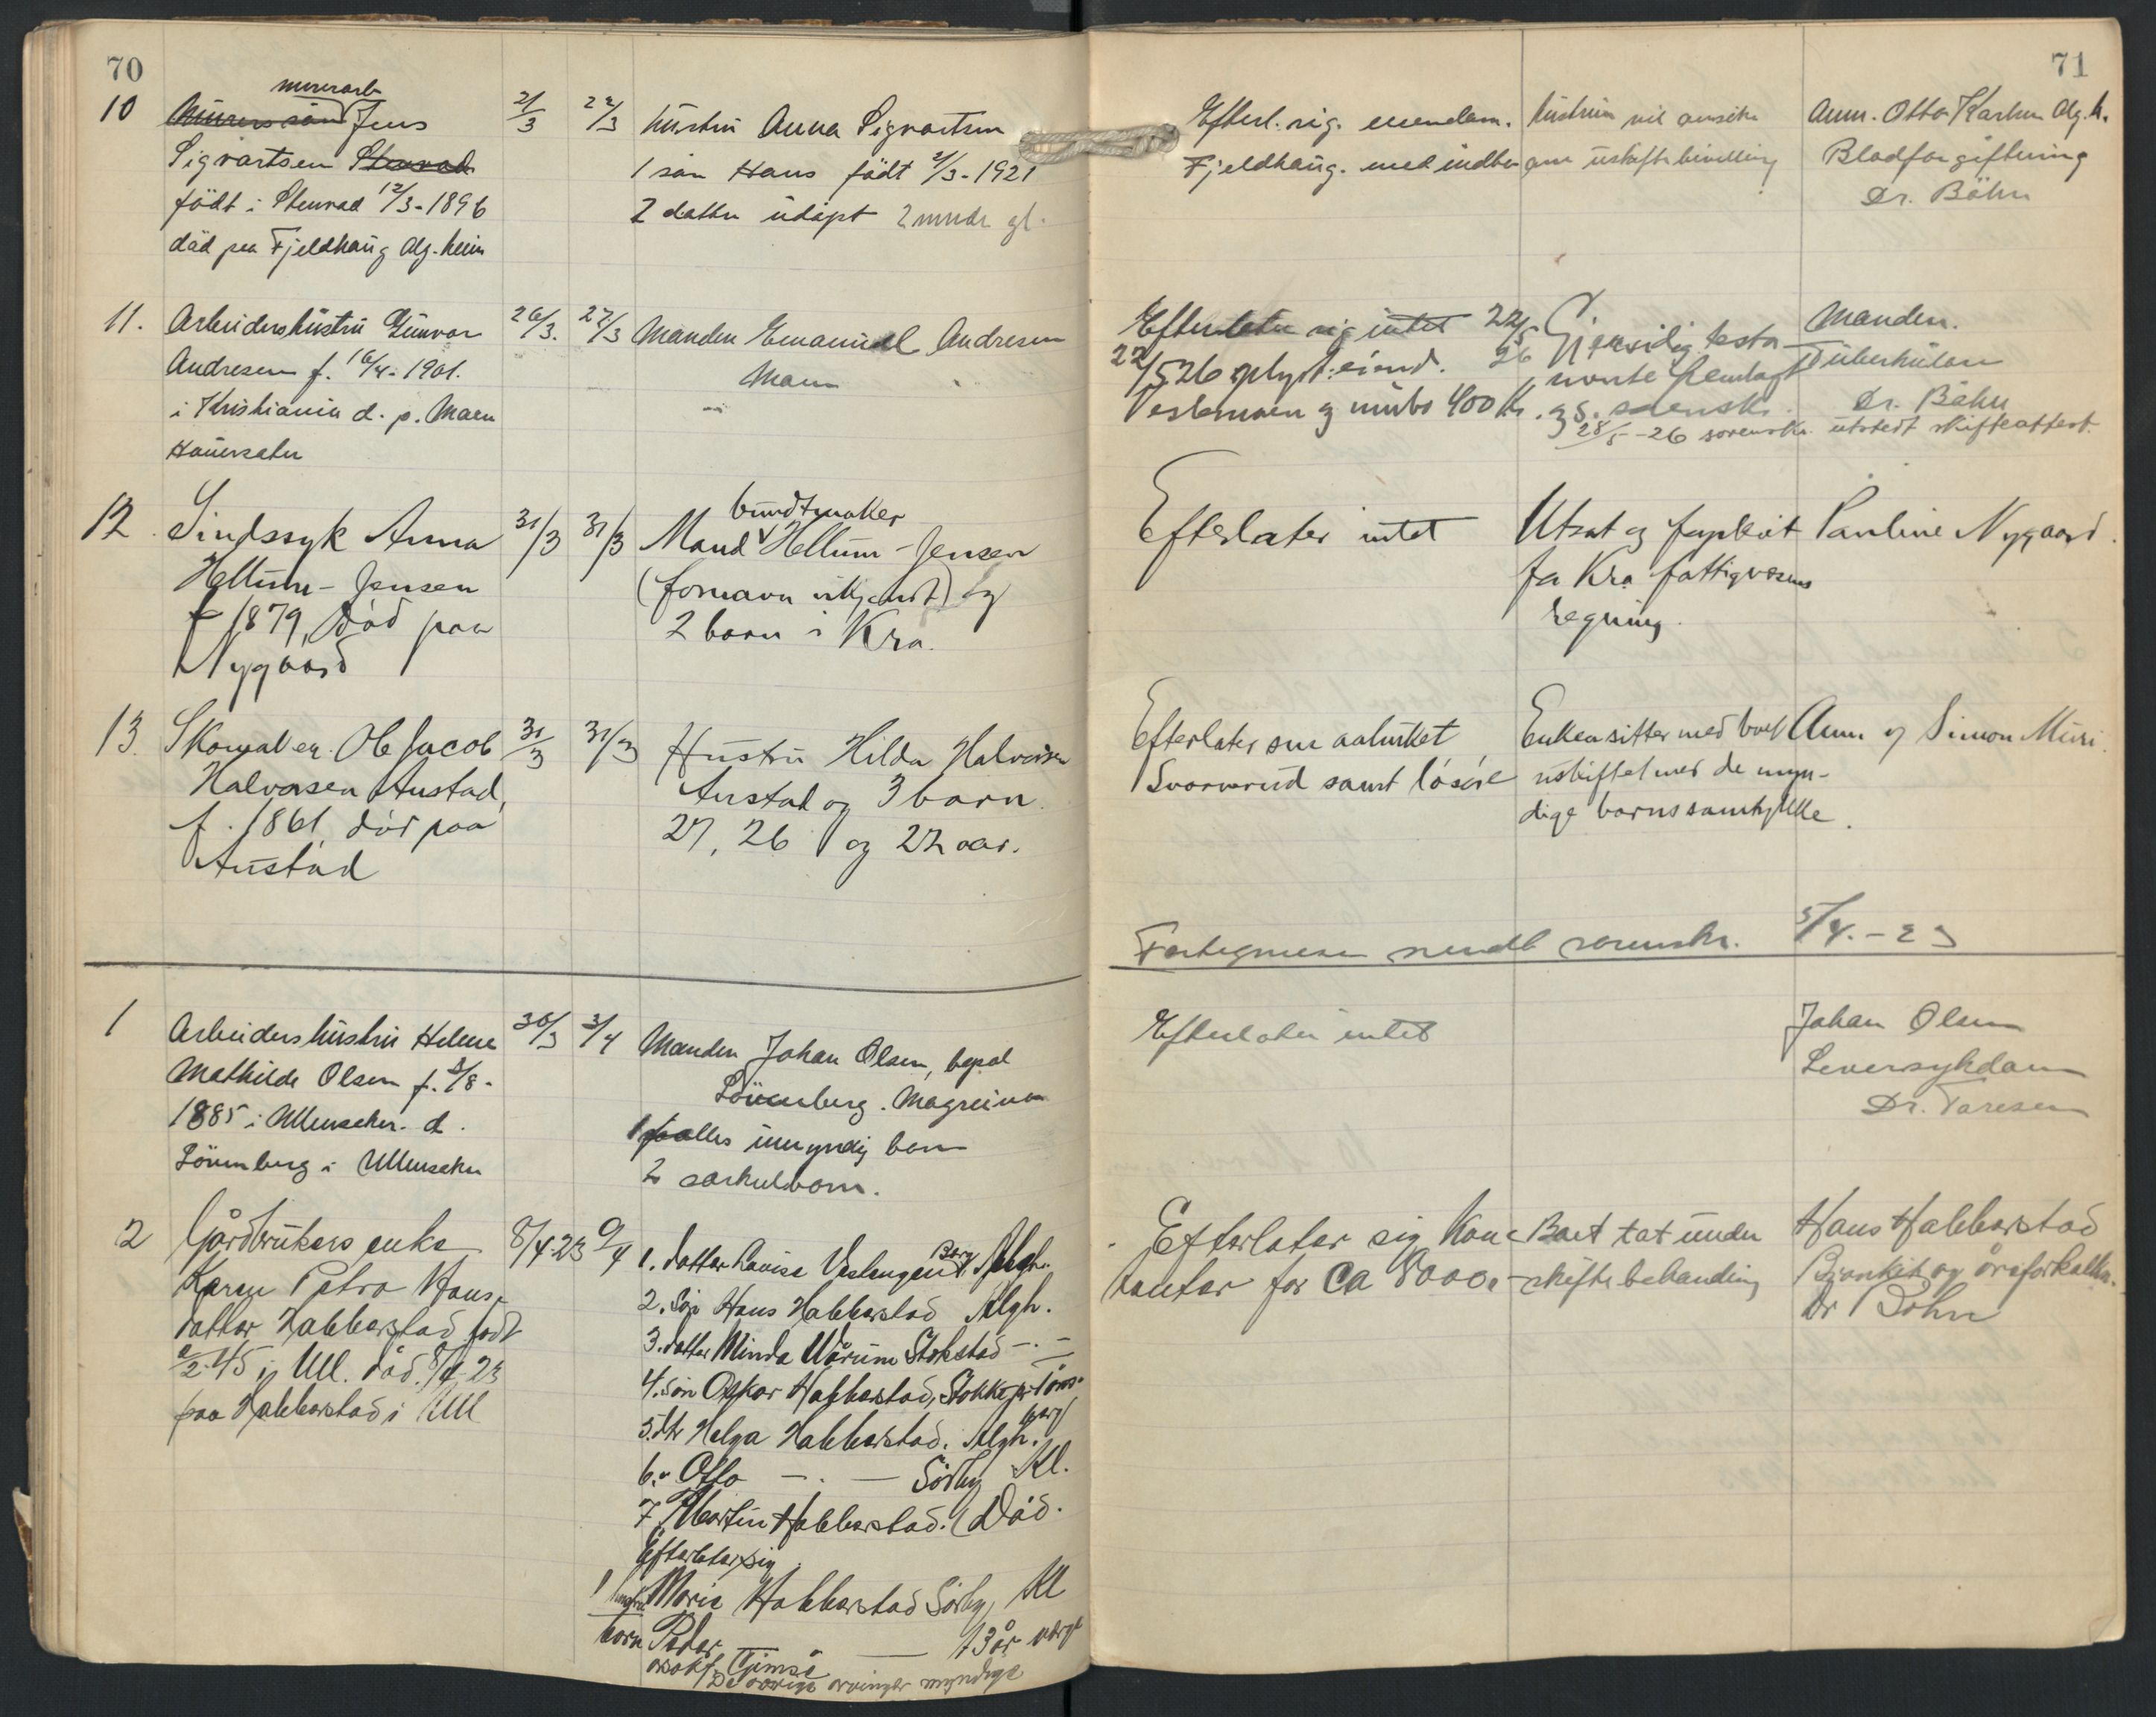 70
10
murerarb
Murersøn Jens
Sigvartsen Stenrad
født i Stenrad 12/3-1896
död paa Fjeldhaug Alg.heim
2/3
22/3
hustru Anna Sigvartsen
1 søn Hans födt 2/3-1921
2 datter udöpt 2 mndr gl.
11.
Arbeidershustru Gunvor
Andresen f. 16/4-1901.
i Kristiania d. p. Maen
Hauersæter
26/3.
27/3
Manden Emanuel Andresen
Maen
12.
Sindssyk Anna
Hellum-Jensen
f 1879, Död paa
Nygaard
31/3
31/3
bundtmaker
Mand Hellum-Jensen
(fornavn ukjendt) og
2 barn i Kra.
13.
Skomaker Ole Jacob
Halvorsen Austad,
f. 1861, död paa
Austad
31/3
31/3
Hustru Hilda Halvorsen
Austad og 3 barn.
27, 26 og 22 aar.
1
Arbeiders hustru Helene
Mathilde Olsen f. 5/8-
1885 i Ullensaker. d.
Lövenberg i Ullensaker
30/3
3/4
Manden Johan Olsen, bopæl
Lövenberg. Magreina
1 fælles umyndig barn
2 særkulbarn.
2
Gårdbrukers enke
Karen Petra Hans-
datter Habberstad født
2/2-45 i Ull. död. 8/4-23
paa Habberstad i Ull
8/4-23
9/4
1. datter Lovise Veslengen Berg Algh.
2. Søn Hans Habberstad Algh.
3. datter Minda Wårum Stokstad -.-
4. Søn Oskar Habberstad, Stokke pr Töns-
berg
5. dtr Helga Habberstad. Algh.
6. " Otto -.- Sörby Kl.
7 Martin Habberstad. (Död.
Efterlater sig
hustru Marie Habberstad Sörby, Kl
barn Peder — 13 år værge
De øvrige arvinger myndige
71
Efterl. sig. eiendom.
Fjeldhaug. med indbo
hustruen vil ansöke
om uskiftebevilling
Anm. Otto Karlsen Alg.h.
Blodforgiftning
Dr. Böhn
Efterlater sig intet
22/5 26 oplyst: eiend.
Vestermaen og innbo 400 kr.
22/5 26
Gjensidig testa-
mente fremlagt
28/5-26 sorenskr. utstedt skifteattest.
Manden.
Tuberkulose
Dr. Böhn
Efterlater intet
Utsat og forpleiet
for Kra fattigvæsens
regning.
Pauline Nygaard.
Efterlater sne aabruket
Svarverud samt løsöre
Enken sitter med boet
uskiftet med de myn-
dige barns samtykke.
Anm og Simon Muri.
Fortegnelsen sendt sorenskr. 5/4.-23
Efterlater intet
Johan Olsen
Leversykdom
Dr. Toresen
Efterlater sig Kon-
tanter for Ca 8000.-
Boet tat under
skifte behandling
Hans Habberstad
Bronkit og åreforkalkn.
Dr Böhn